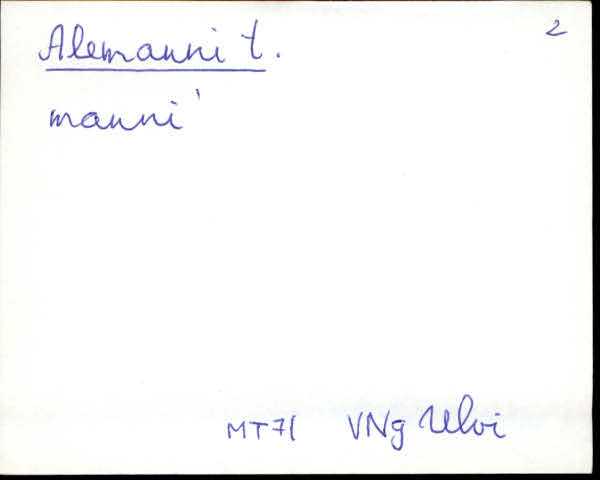 2
Alemanni t.
manni'
MT71 VNg Ulvi